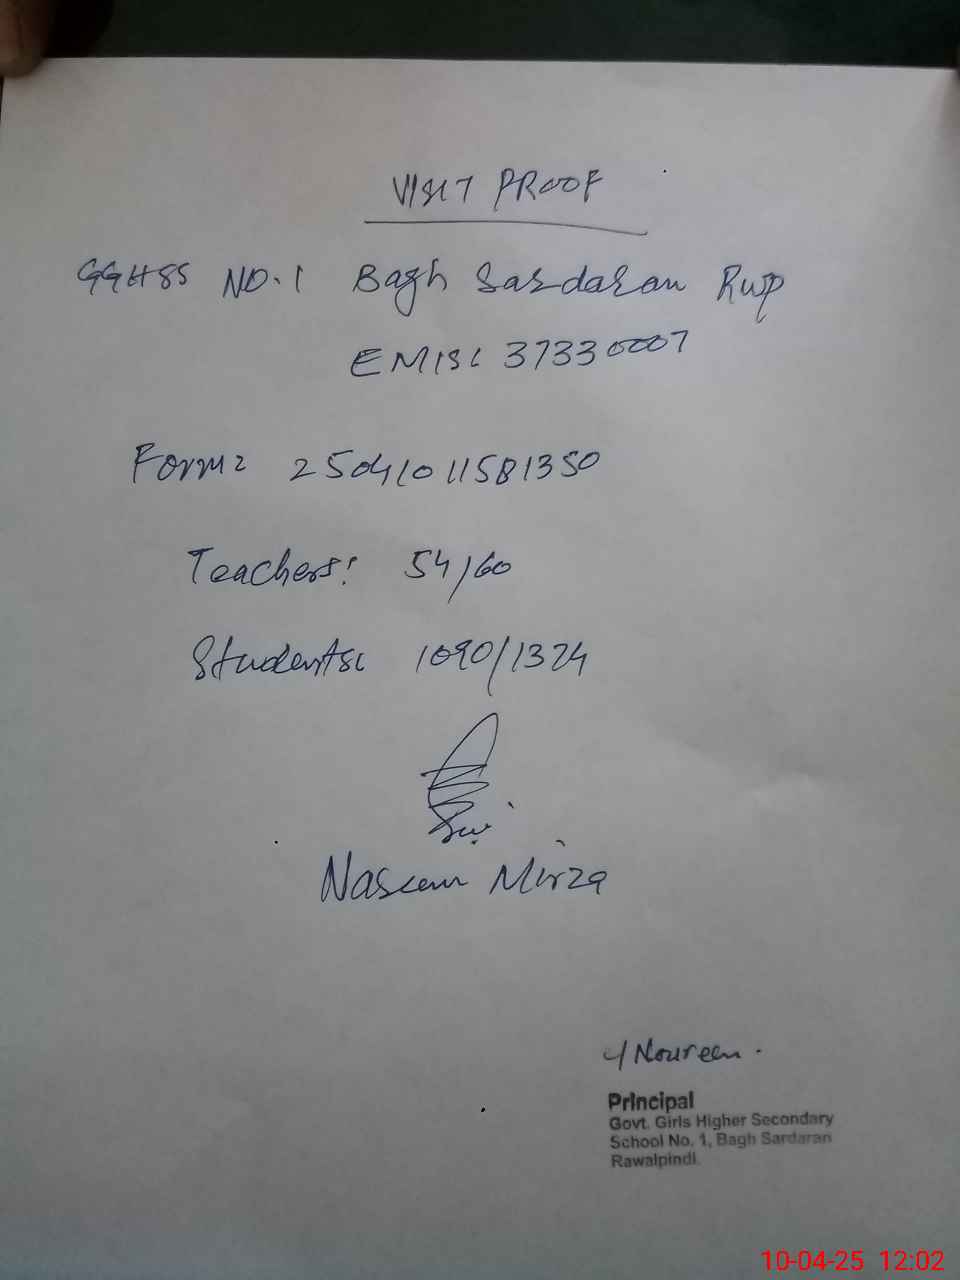 VISIT PROOF
GGHSS NO.1 Bagh Sardaran Rwp
EMIS: 37330007
Form: 25041011581350
Teachers: 54/60
Students: 1090/1324
Naseem Mirza
Noureen.
Principal
Govt. Girls Higher Secondary
School No. 1, Bagh Sardaran
Rawalpindi.
10-04-25 12:02